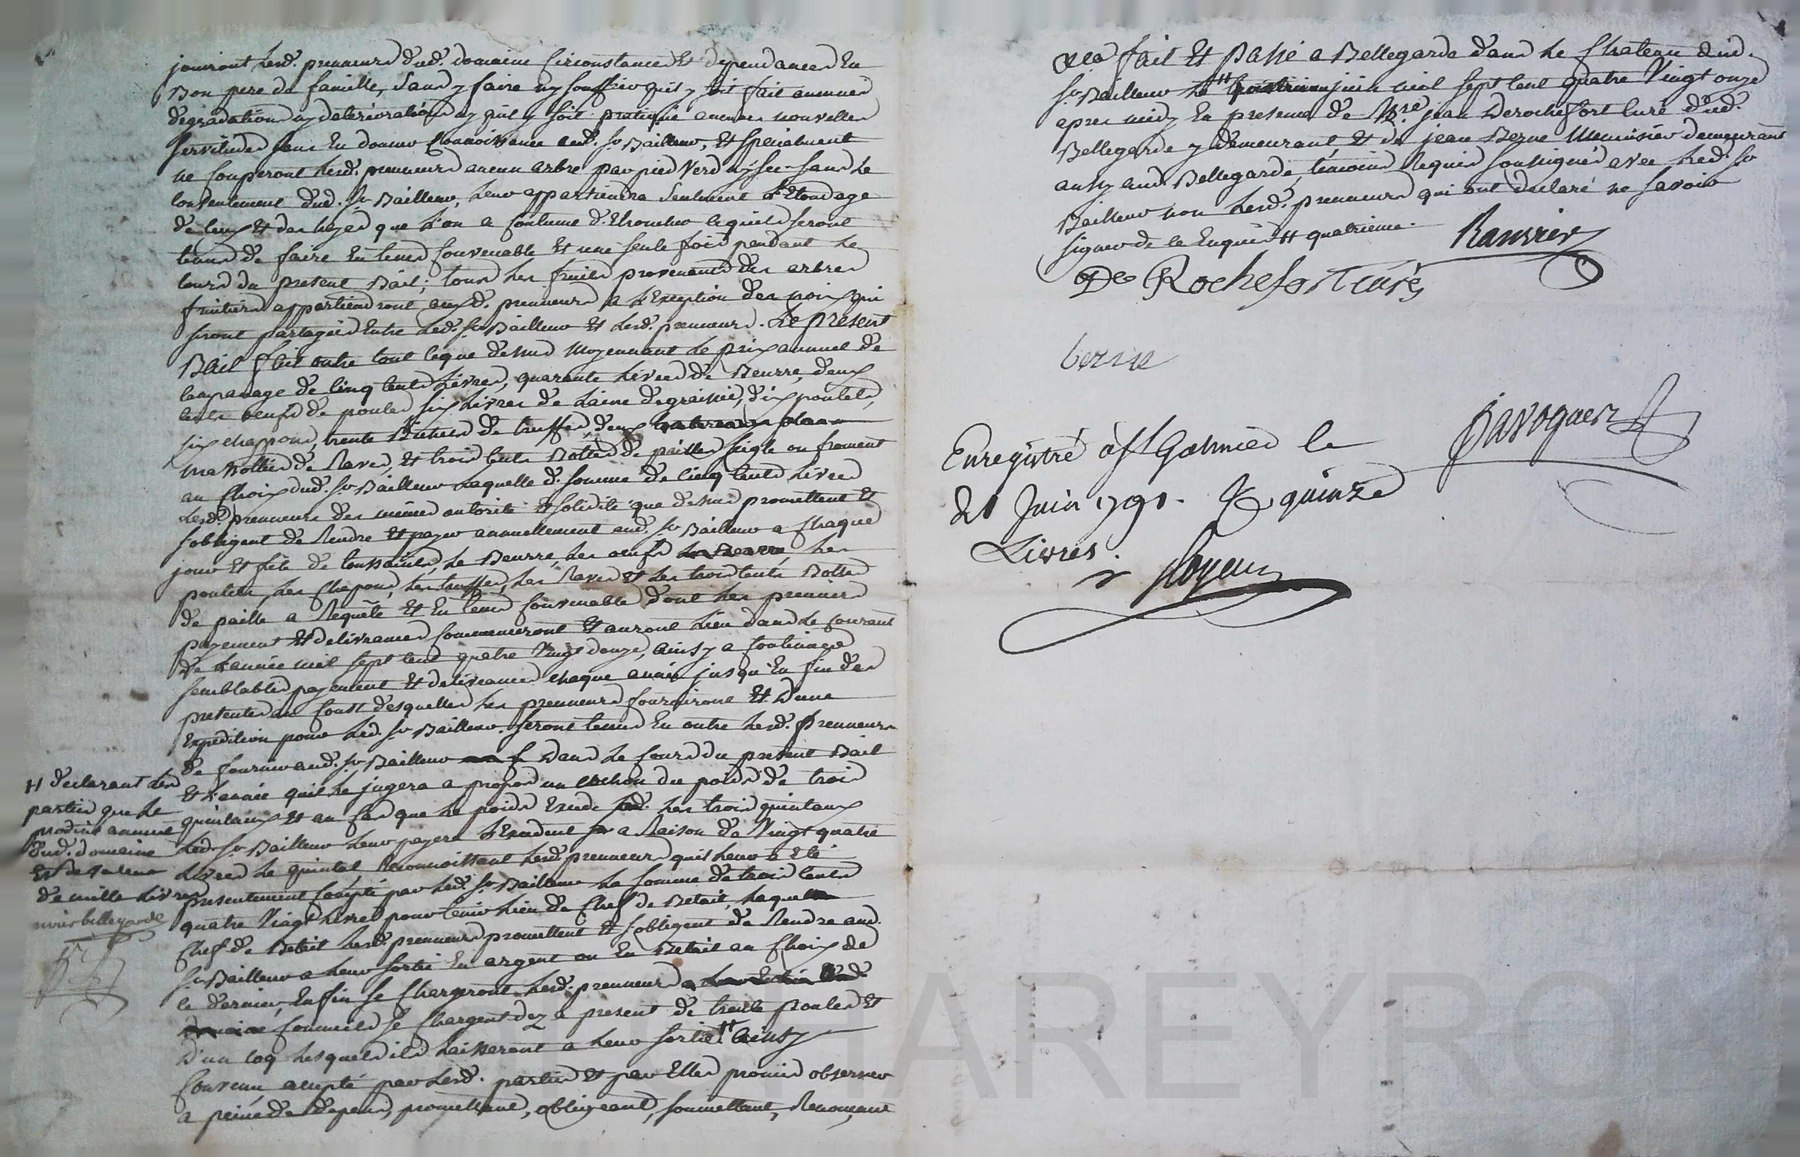 jouiront lesd. preneurs dud. domaine Circonstances Et dependances En
Bon pere de famille, sans y faire ny souffrir quil y soit fait aucunes
degradations ny deteriorations ny quil y soit pratiqué aucunes nouvelles
servitudes sans En donner Connoissance aud. sr Bailleur, Et specialement
ne Couperont lesd. preneurs aucun arbre par pied Verd ny sec sans le
Consentement dud. sr Bailleur, leur appartiendra seulement L'Elondage
de ceux Et des hayes que l'on a Coutume d'Ebrancher lequels seront
tenus de faire En tems Convenable Et une seule fois pendant le
Cours du present Bail; tous les fruits provenants des arbres
fruitiers appartiendront auxd. preneurs a l'Exeption des noix qui
seront partagées Entre led. sr Bailleur Et lesd. preneurs. Le present
Bail fait outre tout ceque dessus Moyennant le prix annuel de
Cinq Cents Livres, quarante Livres de Beurre, deux
Cents oeufs de poules six Livres de Laine degraissée, dix poulets,
six chappons, trente Bichets de truffes, deux
de Raves, Et trois Cents Bottes de pailles seigle ou froment
au Choix dud. sr Bailleur Laquelle d. somme de Cinq Cents Livres
Lesd. preneurs des même autorité Et solidité que dessus promettent Et
s'obligent de Rendre Et payer annuellement aud. sr Bailleur a Chaque
jour Et fête de toussaints, Le Beurre les oeufs les
poulets, les Chapons, les truffes, les Raves Et les trois Cents Bottes
de paille a Requête Et En tems Convenable dont les premiers
payement Et delivrances Commenceront Et auront Lieu dans le Courant
de L'année mil sept cent quatre Vingt douze, ainsy a Continuer
semblables payement Et delivrance chaque année jusqu'En fin des
presentes au Coust desquelles les preneurs fourniront Et d'une
Expedition pour led. sr Bailleur. seront tenus En outre lesd. Preneurs
de fournir aud. sr Bailleur Dans le Cours du present Bail
Et L'année quil le jugera a propos un cochon du poids de trois
quintaux Et au Cas que le poids Excede les trois quintaux
led. sr Bailleur leur payera L'Excedent a Raison de Vingt quatre
Livres le quintal, Reconnoissant lesd. preneurs quil leur a Eté
presentement Compté par led. sr Bailleur la somme de trois Cents
quatre Vingt Livres pour tenir Lieu de Chef de Betail, lequel
Chef de Betail lesd. preneurs promettent Et s'obligent de Rendre aud.
sr Bailleur a leur sortie En argent ou En Betail au Choix de
ce dernier, Enfin se Chargeront lesd. preneurs
Comme ils se Chargent dez a present de trente Poules Et
d'un Coq lesquels ils laisseront a leur sortie H ainsy
Convenu accepté par lesd. parties Et par Elles promis observer
a peine de depens, promettant, obligeant, soumettant, Renonçant
H declarant les
parties que le
produit annuel
dud. domaine
Est de valeur
de mille Livres
&ca fait Et Passé a Bellegarde dans le Chateau dud.
sr Bailleur le juin mil sept Cent quatre Vingt onze
apres midy En presence de Mre jean Derochefort Curé dud.
Bellegarde y demeurant Et de jean Berne Menuisier demeurant
aussy aud. Bellegarde temoins Requis soussignés avec led. sr
Bailleur non lesd. preneurs qui ont declaré ne savoir
signer de ce Enquis H quatrieme.
Ranvier
De Rochefort Curé
berne
Javogues
Enregistré à St Galmier le
21 Juin 1791. R quinze
Livres.
CHAREYRO